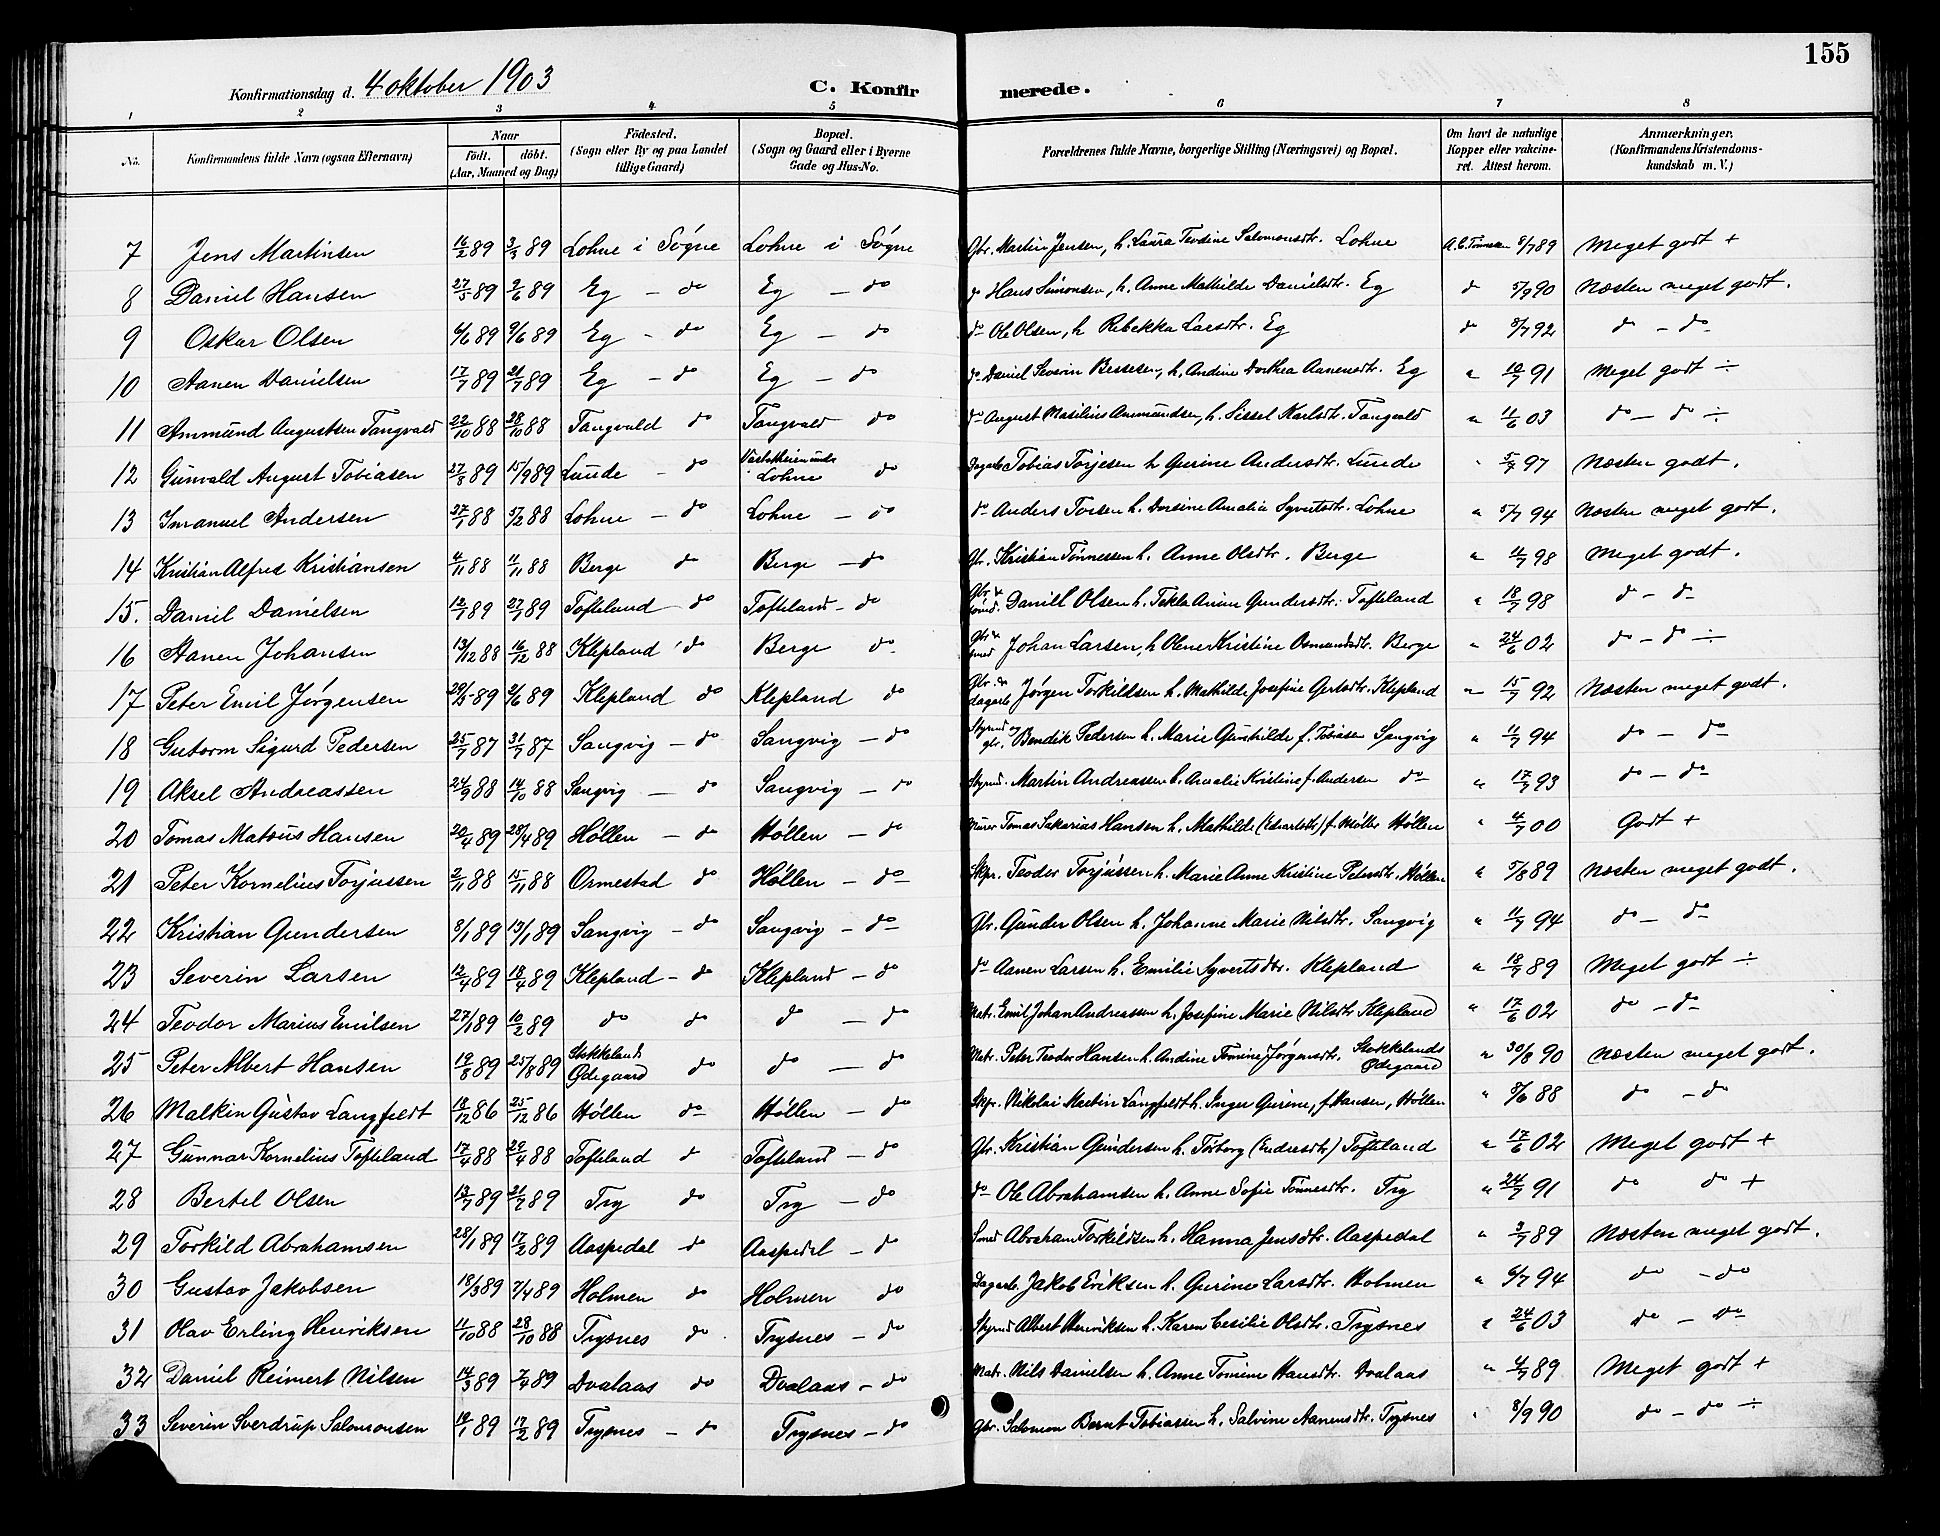 155
Konfirmationsdag d. 4 oktober 1903 C. Konfirmerede.
1 2 3 4 5 6 7 8
No. Konfirmandens fulde Navn (ogsaa Efternavn) Naar födt. döbt. (Aar, Maaned og Dag) Födested. (Sogn eller By og paa Landet tillige Gaard) Bopæl. (Sogn og Gaard eller i Byerne Gade og Hus-No. Forældrenes fulde Navne, borgerlige Stilling (Næringsvei) og Bopæl. Om havt de naturlige Kopper eller vakcineret. Attest herom. Anmærkninger. (Konfirmandens Kristendomskundskab m. V.)
7 Jens Martinsen 16/2 89 3/3 89 Lohne i Søgne Lohne i Søgne Gbr. Martin Jensen, h. Laura Teodine Salomonsdtr. Lohne 8/7 89 Meget godt +
8 Daniel Hansen 27/5 89 2/6 89 Eg - do Eg - do do Hans Simonsen, h. Anne Mathilde Danielsdtr. Eg do 5/9 90 Næsten meget godt.
9 Oskar Olsen 6/6 89 9/6 89 Eg - do Eg - do do Ole Olsen, h Rebekka Larsdtr. Eg do 8/7 92 do - do
10 Aanen Danielsen 17/7 89 21/7 89 Eg - do Eg - do do Daniel Severin Bessesen, h. Andine Dorthea Aanensdtr. Eg " 10/7 91 Meget godt ÷
11 Ammund Augustsen Tangvald 22/10 88 28/10 88 Tangvald do Tangvald do do August Masilius Ammundsen, h. Sissel Karlsdtr. Tangvald " 11/6 03 do - do ÷
12 Gunvald August Tobiasen 27/8 89 15/9 89 Lunde - do Lohne do Dagarb Tobias Torjesen h Gurine Andersdtr. Lunde " 5/7 97 Næsten godt.
13 Imanuel Andersen 27/1 88 5/2 88 Lohne - do Lohne - do do Anders Torsen h. Dorsine Amalie Syvertsdtr. Lohne " 5/7 94 Næsten meget godt.
14 Kristian Alfred Kristiansen 4/11 88 11/11 88 Berge do Berge - do Gbr. Kristian Tønnessen h. Anne Olsdtr. Berge " 4/7 98 Meget godt.
15. Daniel Danielsen 12/7 89 27/7 89 Tofteland - do Tofteland - do Gbr & smed. Daniel Olsen h. Tekla Anine Gundersdtr. Tofteland " 18/7 98 do - do
16 Aanen Johansen 13/12 88 16/12 88 Klepland do Berge do Gbr & smed Johan Larsen, h Olene Kristine Osmundsdtr. Berge " 24/6 02 do - do ÷
17 Peter Emil Jørgensen 29/5 89 2/6 89 Klepland do Klepland do Gbr. & dagarb Jørgen Torkildsen h. Mathilde Josefine Gertsdtr. Klepland " 15/7 92 Næsten meget godt.
18 Gutorm Sigurd Pedersen 25/7 87 31/7 87 Sangvig - do Sangvig - do Styrmd og gbr. Bendik Pedersen h. Marie Gunhilde f. Tobiasen Sangvig " 11/7 94 do - do
19 Aksel Andreassen 24/9 88 14/10 88 Sangvig - do Sangvig - do Styrmd. Martin Andreassen h. Amalie Kristine f. Andersen do " 17/7 93 do - do
20 Tomas Mateus Hansen 20/4 89 28/4 89 Høllen - do Høllen - do Murer Tomas Sakarias Hansen h. Mathilde (Edvardsdtr) f. Møller Høllen " 4/7 00 Godt +
21 Peter Kornelius Torjussen 2/11 88 15/11 88 Ormestad do Høllen - do Skpr. Teodor Torjussen h. Marie Anne Kristine Petersdtr. Høllen " 5/8 89 Næsten meget godt.
22 Kristian Gundersen 8/1 89 13/1 89 Sangvig - do Sangvig - do Gbr. Gunder Olsen h. Johanne Marie Nilsdtr. Sangvig " 11/7 94 do - do
23 Severin Larsen 12/4 89 18/4 89 Klepland - do Klepland - do do Aanen Larsen h. Emilie Syvertsdtr. Klepland " 18/7 89 Meget godt ÷
24 Teodor Marius Emilsen 27/1 89 10/2 89 do do do - do Matr. Emil Johan Andreassen h. Josefine Marie Nilsdtr Klepland " 17/6 02 do - do
25 Peter Albert Hansen 19/8 89 25/8 89 Stokkelands Ødegaard do do - do Matr. Peter Teodor Hansen h. Andine Tomine Jørgensdtr. Stokkelands Ødegaard " 30/8 90 Næsten meget godt.
26 Malkin Gustav Langfeldt 18/12 86 25/12 86 Høllen do Høllen - do Skpr. Nikolai Martin Langfeldt h. Inger Gurine, f. Hansen, Høllen " 8/6 88 do - do
27 Gunnar Kornelius Tofteland 17/4 88 29/4 88 Tofteland do Tofteland - do Gbr. Kristian Gundersen h. Torborg (Andersdtr) Tofteland " 17/6 02 Meget godt +
28 Bertel Olsen 13/7 89 21/7 89 Try do Try - do do Ole Abrahamsen h. Anne Sofie Tønnesdtr. Try " 24/7 91 do do +
29 Torkild Abrahamsen 28/1 89 17/2 89 Aaspedal do Aaspedal - do Smed Abraham Torkildsen h. Hanna Jensdtr. Aaspedal " 3/7 89 Næsten meget godt.
30 Gustav Jakobsen 18/3 89 7/4 89 Holmen do Holmen do Dagarb. Jakob Eriksen h. Gurine Larsdtr. Holmen " 6/7 94 do - do
31 Olav Erling Henriksen 11/10 88 28/10 88 Trysnes do Trysnes - do Styrmd Albert Henriksen h. Karen Cesilie Olsdtr. Trysnes " 24/6 03 do - do
32 Daniel Reimert Nilsen 14/3 89 7/4 89 Dvalaas do Dvalaas - do Matr. Nils Danielsen h. Anne Tomine Hansdtr. Dvalaas " 4/7 89 Meget godt +
33 Severin Sverdrup Salomonsen 19/1 89 17/2 89 Trysnes - do Trysnes - do Gbr. Salomon Bernt Tobiassen h. Salvine Aanensdtr. Trysnes " 8/9 90 do - do ÷